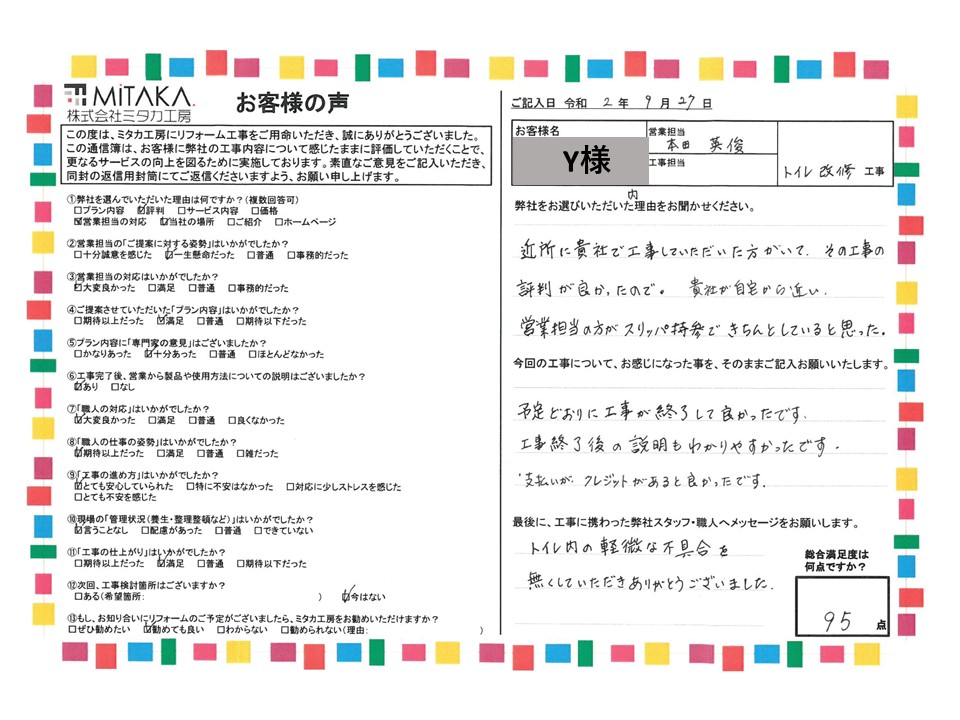 MiTAKA.
株式会社ミタカ工房
お客様の声
この度は、ミタカ工房にリフォーム工事をご用命いただき、誠にありがとうございました。
この通信簿は、お客様に弊社の工事内容について感じたままに評価していただくことで、
更なるサービスの向上を図るために実施しております。素直なご意見をご記入いただき、
同封の返信用封筒にてご返信くださいますよう、お願い申し上げます。
①弊社を選んでいただいた理由は何ですか?(複数回答可)
□プラン内容 ☑評判 □サービス内容 □価格
☑営業担当の対応 ☑当社の場所 □ご紹介 □ホームページ
②営業担当の「ご提案に対する姿勢」はいかがでしたか?
□十分誠意を感じた ☑一生懸命だった □普通 □事務的だった
③営業担当の対応はいかがでしたか?
☑大変良かった □満足 □普通 □事務的だった
④ご提案させていただいた「プラン内容」はいかがでしたか?
□期待以上だった ☑満足 □普通 □期待以下だった
⑤プラン内容に「専門家の意見」はございましたか?
□かなりあった ☑十分あった □普通 □ほとんどなかった
⑥工事完了後、営業から製品や使用方法についての説明はございましたか?
☑あり □なし
⑦「職人の対応」はいかがでしたか?
☑大変良かった □満足 □普通 □良くなかった
⑧「職人の仕事の姿勢」はいかがでしたか?
☑期待以上だった □満足 □普通 □雑だった
⑨「工事の進め方」はいかがでしたか?
☑とても安心していられた □特に不安はなかった □対応に少しストレスを感じた
□とても不安を感じた
⑩現場の「管理状況(養生・整理整頓など)」はいかがでしたか?
☑言うことなし □配慮があった □普通 □できていない
⑪「工事の仕上がり」はいかがでしたか?
□期待以上だった ☑満足 □普通 □期待以下だった
⑫次回、工事検討箇所はございますか?
□ある(希望箇所: ) ☑今はない
⑬もし、お知り合いにリフォームのご予定がございましたら、ミタカ工房をお勧めいただけますか?
□ぜひ勧めたい ☑勧めても良い □わからない □勧められない(理由: )
ご記入日 令和 2 年 9 月 27 日
お客様名
Y様
営業担当
本田 英俊
工事担当
トイレ 改修 工事
内
弊社をお選びいただいた理由をお聞かせください。
近所に貴社で工事していただいた方がいて、その工事の
評判が良かったので。 貴社が自宅から近い.
営業担当の方がスリッパ持参できちんとしていると思った。
今回の工事について、お感じになった事を、そのままご記入お願いいたします。
予定どおりに工事が終了して良かったです.
工事終了後の説明もわかりやすかったです.
支払いが、クレジットがあると良かったです.
最後に、工事に携わった弊社スタッフ・職人へメッセージをお願いします。
トイレ内の軽微な不具合を
無くしていただきありがとうございました.
総合満足度は
何点ですか?
95 点